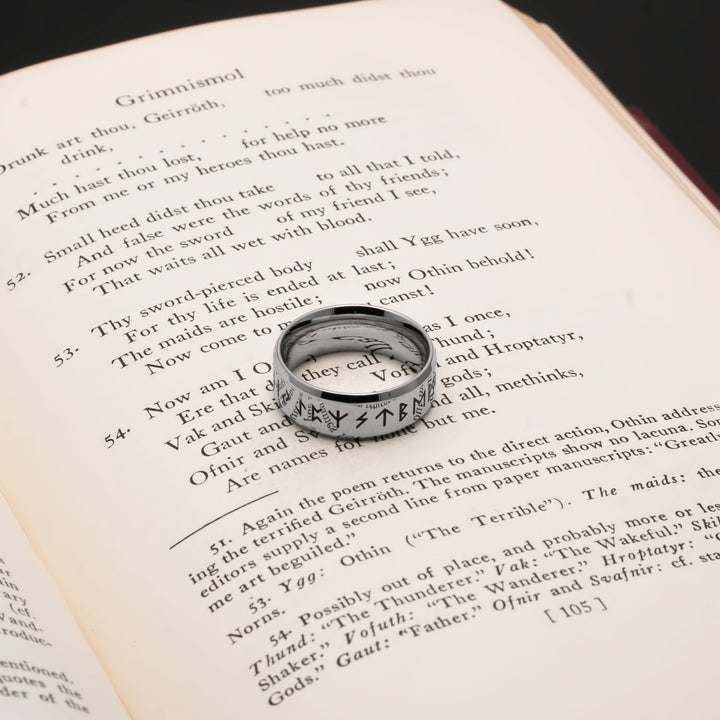 Grimnismol
Drunk art thou, Geirröth, too much didst thou
drink,
. . . . . . . . . . . . . .
Much hast thou lost, for help no more
From me or my heroes thou hast.
52. Small heed didst thou take to all that I told,
And false were the words of thy friends;
For now the sword of my friend I see,
That waits all wet with blood.
53. Thy sword-pierced body shall Ygg have soon,
For thy life is ended at last;
The maids are hostile; now Othin behold!
Now come to canst!
54. Now am I as I once,
Ere that they call
Vak and Vofuth and Hroptatyr,
Gaut and gods;
Ofnir and all, methinks,
Are names for none but me.
51. Again the poem returns to the direct action, Othin address-
ing the terrified Geirröth. The manuscripts show no lacuna. Som
editors supply a second line from paper manuscripts: "Greatl
me art beguiled."
53. Ygg: Othin ("The Terrible"). The maids: the
Norns.
54. Possibly out of place, and probably more or less
Thund: "The Thunderer." Vak: "The Wakeful." Skil
Shaker." Vofuth: "The Wanderer." Hroptatyr: "C
Gods." Gaut: "Father." Ofnir and Svafnir: cf. sta
[ 105 ]
ary
(cf.
Wand-
roduc-
entioned.
quotes the
der of the
ᛈᛉᛊᛏᛒ